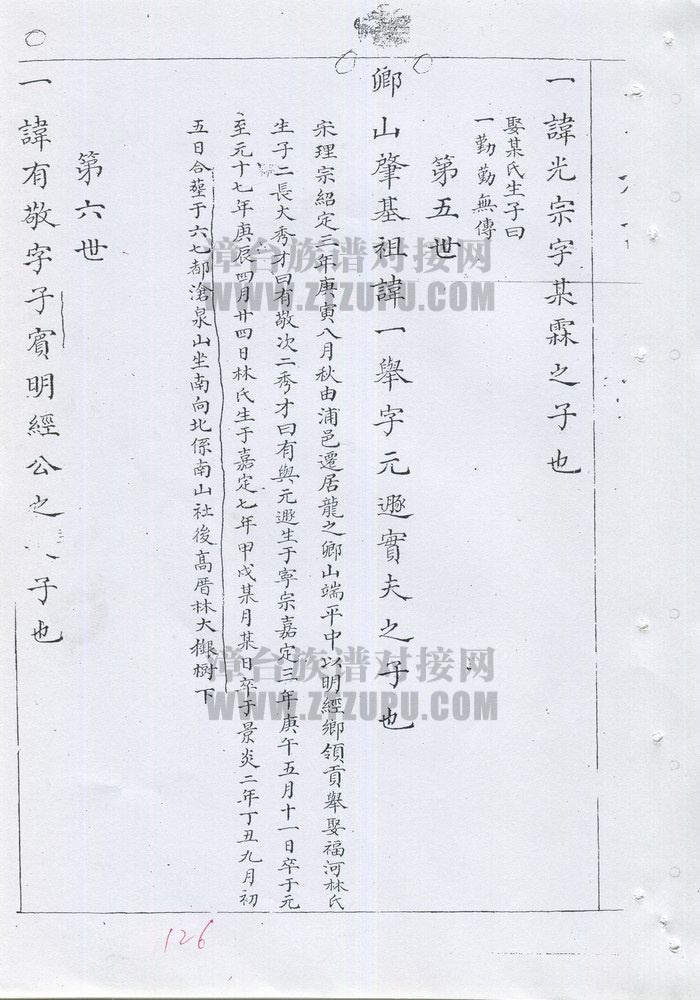 一諱光宗字某霖之子也
娶某氏生子曰
一勤勤無傳
第五世
鄉山肇基祖諱一舉字元遯實夫之子也
宋理宗紹定三年庚寅八月秋由浦邑遷居龍之鄉山端平中以明經鄉領貢舉娶福河林氏
生子二長大秀才曰有敬次二秀才曰有與元遯生于寧宗嘉定三年庚午五月十一日卒于元
至元十七年庚辰四月廿四日林氏生于嘉定七年甲戌某月某日卒于景炎二年丁丑九月初
五日合塟于六七都滄泉山坐南向北係南山社後高厝林大樹下
第六世
一諱有敬字子賓明經公之子也
漳台族谱对接网
WWW.ZTZUPU.COM
漳台族谱对接网
WWW.ZTZUPU.COM
126